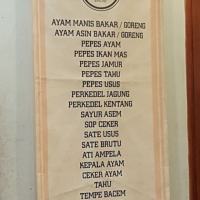 AYAM MANIS BAKAR / GORENG
AYAM ASIN BAKAR / GORENG
PEPES AYAM
PEPES IKAN MAS
PEPES JAMUR
PEPES TAHU
PEPES USUS
PERKEDEL JAGUNG
PERKEDEL KENTANG
SAYUR ASEM
SOP CEKER
SATE USUS
SATE BRUTU
ATI AMPELA
KEPALA AYAM
CEKER AYAM
TAHU
TEMPE BACEM